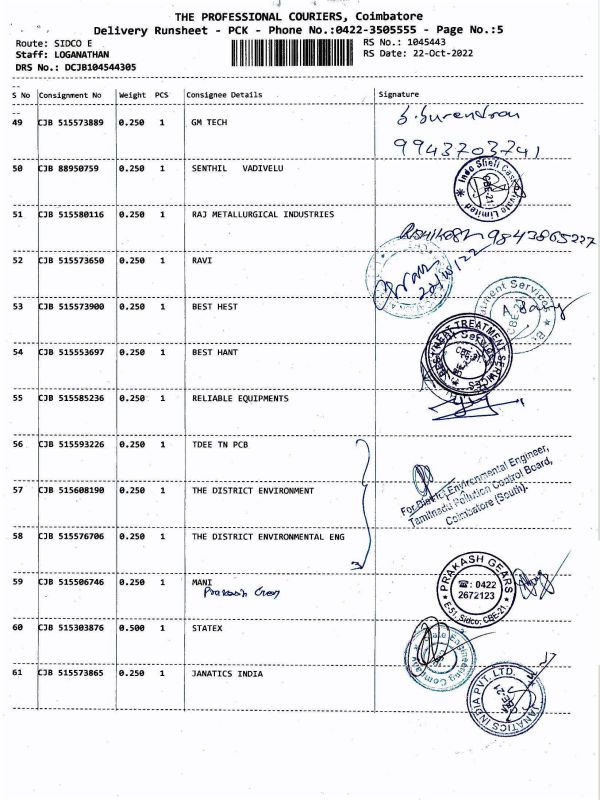 THE PROFESSIONAL COURIERS, Coimbatore
Delivery Runsheet - PCK - Phone No.:0422-3505555 - Page No.:5
Route: SIDCO E RS No.: 1045443
Staff: LOGANATHAN RS Date: 22-Oct-2022
DRS No.: DCJB104544305
S No Consignment No Weight PCS Consignee Details Signature
49 CJB 515573889 0.250 1 GM TECH S.Surendran
9943703741
50 CJB 88950759 0.250 1 SENTHIL VADIVELU Indo Shell Private Limited CBE-21
51 CJB 515580116 0.250 1 RAJ METALLURGICAL INDUSTRIES
9843865227
52 CJB 515573650 0.250 1 RAVI
22/10/22
53 CJB 515573900 0.250 1 BEST HEST
Services CBE-21
54 CJB 515553697 0.250 1 BEST HANT
BEST HEAT TREATMENT SERVICES
55 CJB 515585236 0.250 1 RELIABLE EQUIPMENTS
56 CJB 515593226 0.250 1 TDEE TN PCB
57 CJB 515608190 0.250 1 THE DISTRICT ENVIRONMENT
For District Environmental Engineer,
Tamilnadu Pollution Control Board,
Coimbatore (South).
58 CJB 515576706 0.250 1 THE DISTRICT ENVIRONMENTAL ENG
59 CJB 515506746 0.250 1 MANI
Prakash Gears
PRAKASH GEARS
☎: 0422
2672123
E-51, Sidco, CBE-21.
60 CJB 515303876 0.500 1 STATEX
Engineering Company
61 CJB 515573865 0.250 1 JANATICS INDIA
JANATICS INDIA PVT. LTD.
CBE-21